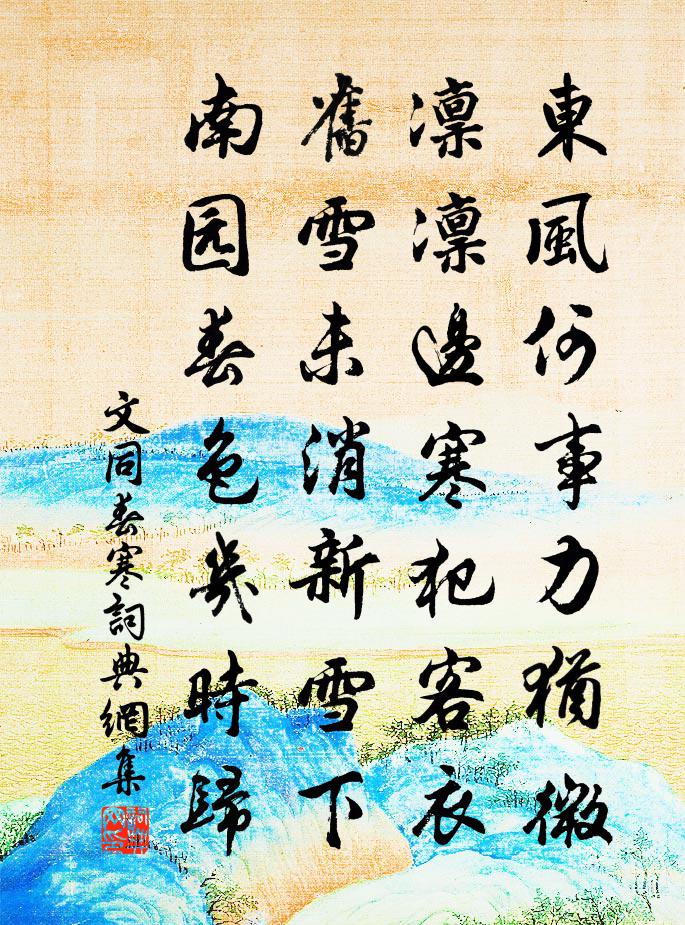 東風何事力猶微
凛凛邊寒犯客衣
舊雪未消新雪下
南园春色幾時歸
文同春寒詞典網集